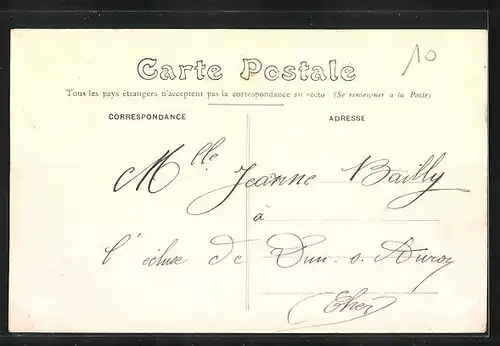 10
Carte Postale
Tous les pays étrangers n'acceptent pas la correspondance au recto (Se renseigner à la Poste)
CORRESPONDANCE
ADRESSE
Mlle Jeanne Bailly
à
l'écluse de Dun-s-Auron
(Cher)